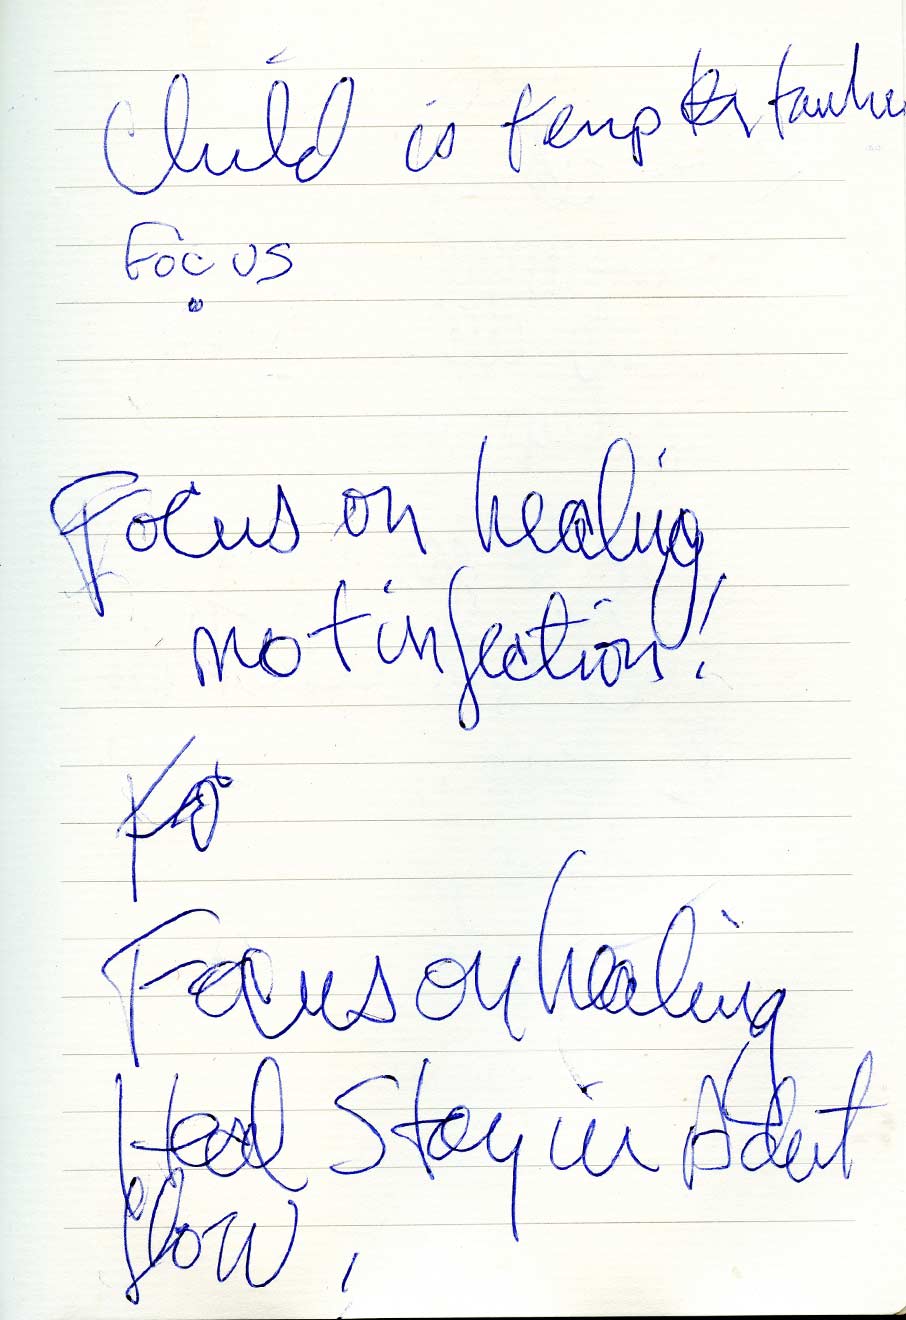 Child is temp
Focus
Focus on healing
not infection!
Focus on healing
Heal Stay in Adult
flow,